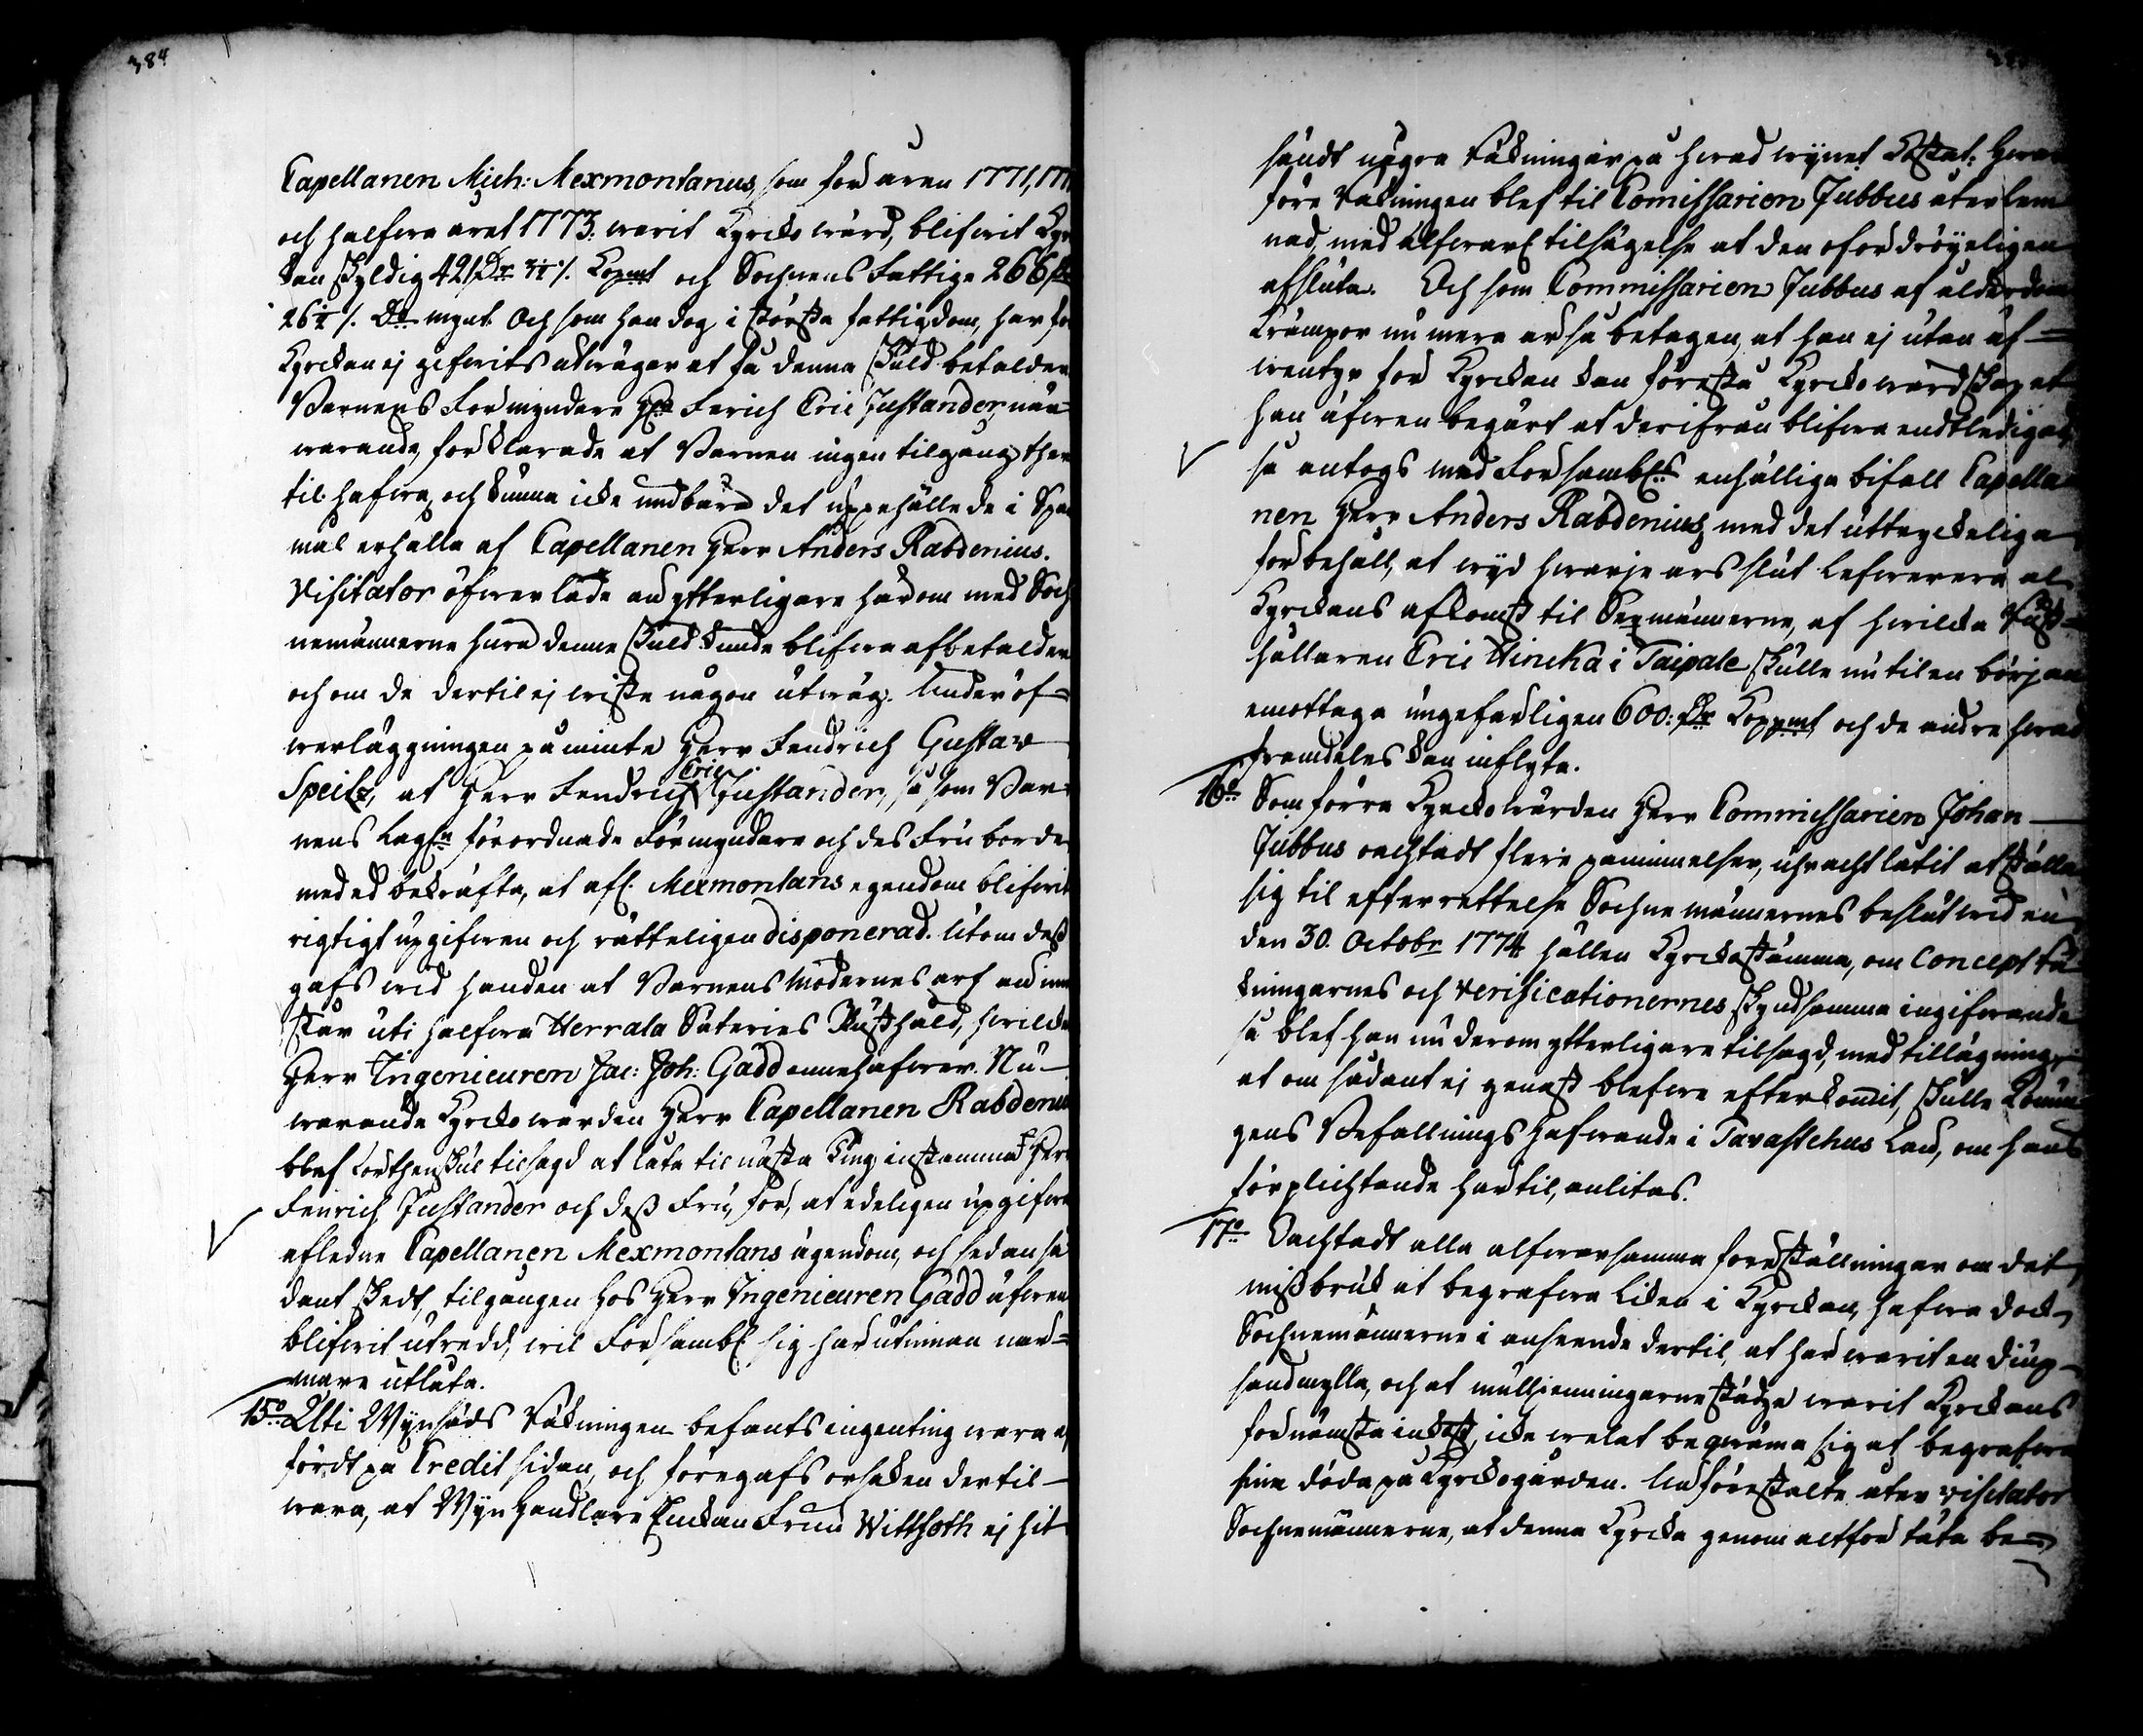 384
Capellanen Mich: Mexmontanus, som för åren 1771, 177
och halfwa året 1773. warit Kyrckowärd, blifwit Kyr
kan skyldig 421 Dr Kopmt och Sochnens Fattige 266
26 1/2 /. Do mynt. Och som han dog i största fattigdom, har för
Kyrckan ej gifwits utwägar at få denna skuld betalder
Barnens Förmyndare Herr Fenrich Eric Justander, när-
warande, förklarade at Barnen ingen tilgång ther
til hafwa, och kunna icke undbära det uppehälle de i Spa
mål erhålla af Capellanen Herr Anders Rabdenius.
Visitator öfwerlade än ytterligare härom med Soch
nemännerne huru denne skuld kunde blifwa afbetalder
och om de dertil ej wiste någon utwäg. Under öf-
werläggningen påminte Herr Fendrich Gustaw
Speitz, at Herr Fendrich Eric Justander, så som Bar-
nens Lagln förordnade Förmyndare och des Fru borde
med ed bekräfta, at afl. Mexmontans egendom blifwit
rigtigt upgifwen och rätteligen disponerad. Utom dess
gafs wid handen at Barnens Modernes arf än inne
står uti halfwa Herrala Säteries Rusthåld, hwilcka
Herr Ingenieuren Jac: Joh: Gadd innehafwer. Nu-
warande Kyrckowärden Herr Capellanen Rabdenius
blef fördenskul tilsagd at låta til nästa Ting instämma Herr
Fenrich Justander och dess Fru, för, at edeligen upgifwa
afledne Capellanen Mexmontans ägendom, och sedan så
dant skedt, tilgången hos Herr Ingenieuren Gadd äfwen
blifwit utredd, wil Försambl sig härutinnan när-
mare utlåta.
15o Uti Wynhåds Räkningen befants ingenting wara an
fördt på Credit sidan, och föregafs orsaken dertil
wara, at Wynhandlare Enckan Fruu Witthoth ej hit
sändt några räkningar på hwad wynet kåstat: hwar
före Räkningen blef til Comissarien Jubbus återlem
nad, med alfwarl tilsägelse at den ofördröyeligen
afsluta. Och som Commissarien Jubbus af ålderdoms
krämpor nu mera är så betagen, at han ej utan äf-
wentyr för Kyrckan kan förestå Kyrckowärdskapet
han äfwen begärt at derifrån blifwa endtledigad,
så antogs med Försambls enhälliga bifall Capella
nen Herr Anders Rabdenius, med det uttryckeliga
förbehåll, at wyd hwarje års slut lefwerera al
Kyrckans afkomst til Sexmännerne, af hwilcka Rust-
hållaren Eric Hincka i Taipale skulle nu til en början
emottaga ungefärligen 600: Dr Koppmt och de andre hwad
framdeles kan inflyta.
16o Som förra Kyrckowärden Herr Commissarien Johan
Jubbus oachtadt flere påminnelser, uhracht låtit at ställa
sig til efterrettelse Sochnemännernes beslut wid en
den 30. Octobr 1774 hållen Kyrckostämma, om Concept rä
kningarnes och Verificationernes skyndsamma ingifwande
så blef han nu derom ytterligare tilsagd, med tilläggning,
at om sådant ej genast blefwe efterkommit, skulle Konun
gens Befallningshafwande i Tavastehus Län, om hans
förplichtande härtil, anlitas.
17o Oachtadt alla alfwarsamma föreställningar om det
missbruk at begrafwa Liken i Kyrckan, hafwa dock
Sochnemännerne i anseende dertil, at här warit en diup
sandmylla, och at mullpenningarne städze warit Kyrckans
förnämsta inkåst, icke welat beqwäma sig at begrafwa
sina döda på Kyrckogården. Nu förestälte åter Visitator
Sochnemännerne, at denna Kyrcka genom altför täta be-